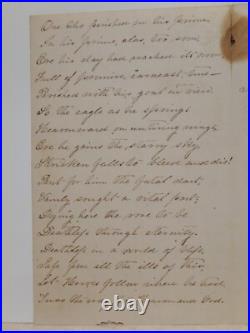 One who perished in his prime,
In his prime, alas, too soon
Ere his day had reached its noon
Full of promise, earnest, true
Perished with his goal in view
So the eagle as he springs
Heavenward on untiring wings,
Ere he gains the starry sky
Stricken falls to bleed and die!
But for him the fatal dart,
Vainly sought a vital part;
Dying here the one to be
Deathless through eternity.
Deathless in a world of bliss,
Safe from all the ills of this,
Let Heroes follow where he trod,
'Twas the and God.